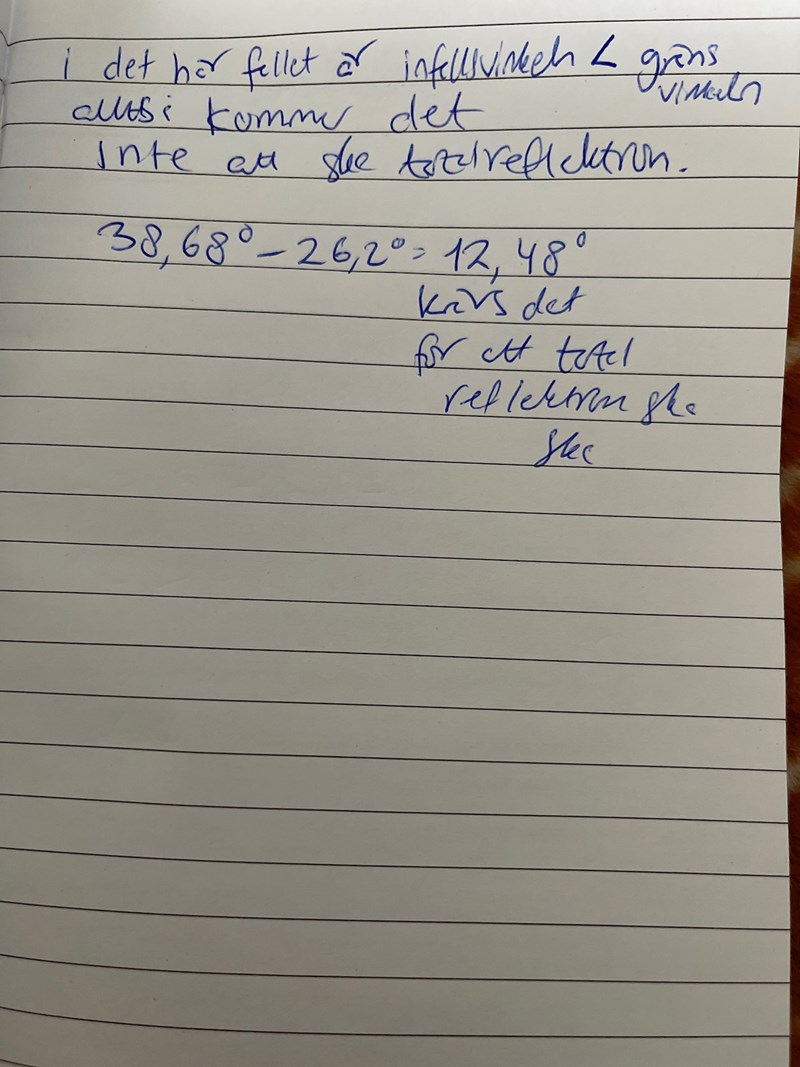 i det här fallet är infallsvinkeln < gräns
vinkeln
alltså kommer det
inte att ske totalreflektion.
38,68° - 26,2° = 12,48°
krävs det
för att total
reflektion ska
ske